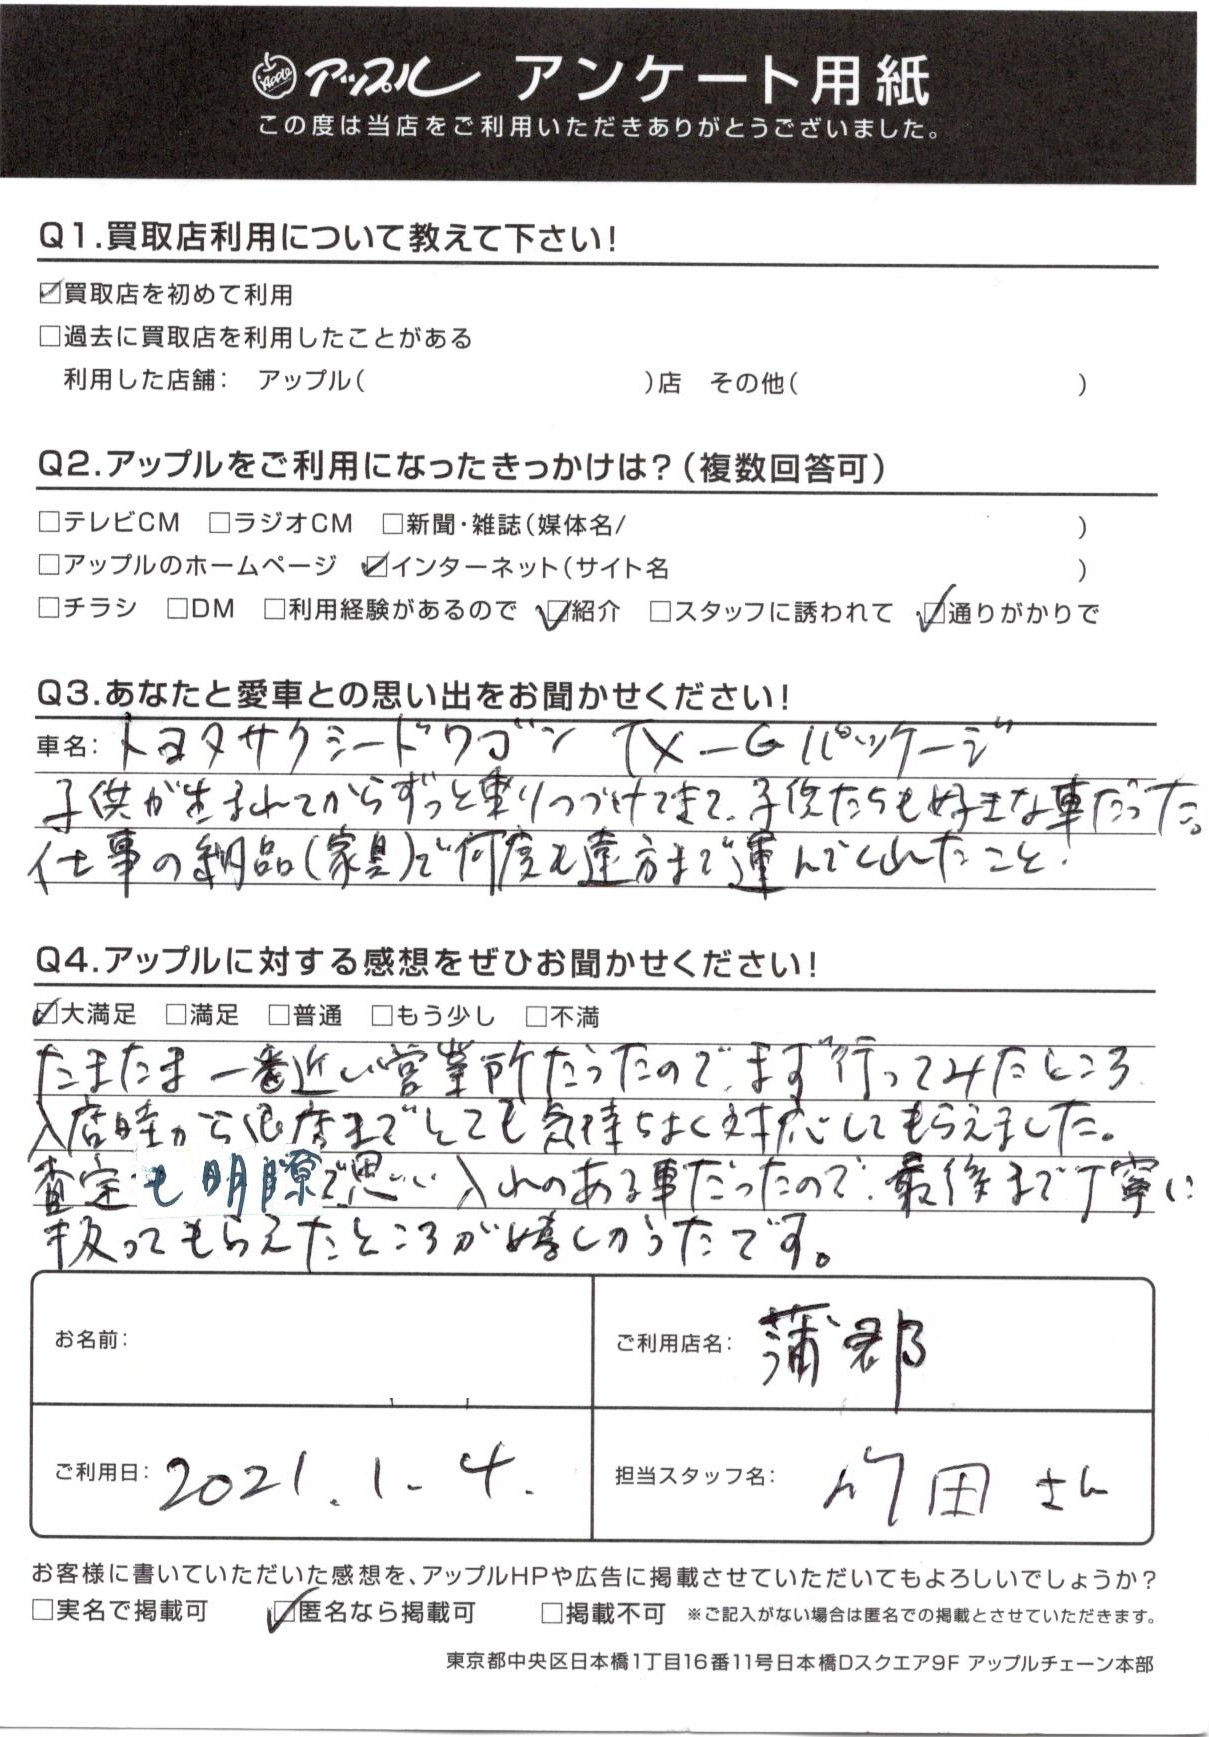 Apple アップル アンケート用紙
この度は当店をご利用いただきありがとうございました。
Q1.買取店利用について教えて下さい!
☑買取店を初めて利用
□過去に買取店を利用したことがある
利用した店舗: アップル( )店 その他( )
Q2.アップルをご利用になったきっかけは?(複数回答可)
□テレビCM □ラジオCM □新聞・雑誌(媒体名/ )
□アップルのホームページ ☑インターネット(サイト名 )
□チラシ □DM □利用経験があるので ☑紹介 □スタッフに誘われて ☑通りがかりで
Q3.あなたと愛車との思い出をお聞かせください!
車名: トヨタサクシードワゴン TX-Gパッケージ
子供が生まれてからずっと乗りつづけてきて、子供たちも好きな車だった。
仕事の納品(家具)で何度も遠方まで運んでくれたこと.
Q4.アップルに対する感想をぜひお聞かせください!
☑大満足 □満足 □普通 □もう少し □不満
たまたま一番近い営業所だったので、まず行ってみたところ
入店時から退店までとても気持ちよく対応してもらえました。
査定も明瞭で思い入れのある車だったので、最後まで丁寧に
扱ってもらえたところが嬉しかったです。
お名前:
ご利用店名: 蒲郡
ご利用日: 2021.1.4.
担当スタッフ名: 竹田さん
お客様に書いていただいた感想を、アップルHPや広告に掲載させていただいてもよろしいでしょうか?
□実名で掲載可 ☑匿名なら掲載可 □掲載不可 ※ご記入がない場合は匿名での掲載とさせていただきます。
東京都中央区日本橋1丁目16番11号日本橋Dスクエア9F アップルチェーン本部